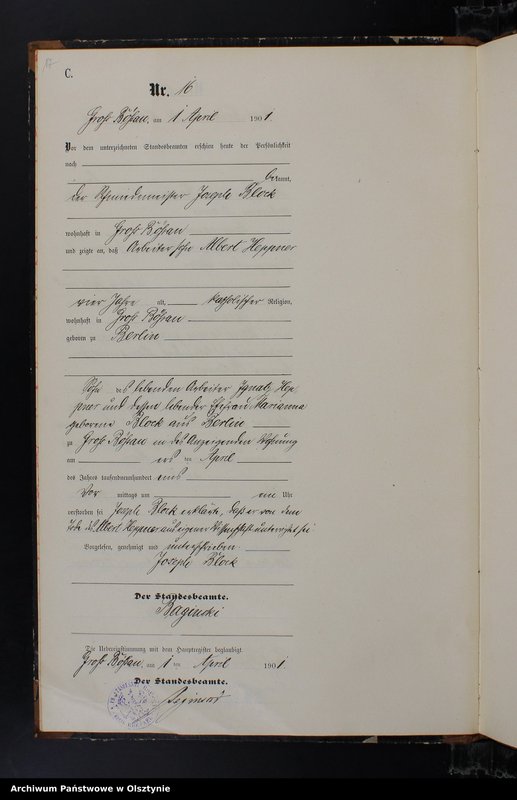 17
C.
Nr. 16
Groß Bößau, am 1 April 1901.
Vor dem unterzeichneten Standesbeamten erschien heute der Persönlichkeit
nach
bekannt,
der Schmiedemeister Joseph Block
wohnhaft in Groß Bößau
und zeigte an, daß Arbeitersohn Albert Heppner
vier Jahre alt, katholischer Religion,
wohnhaft in Groß Bößau
geboren zu Berlin
Sohn des lebenden Arbeiter Ignatz Hep
pner und dessen lebender Ehefrau Marianna
geborene Block aus Berlin
zu Groß Bößau in des Anzeigenden Wohnung
am ersten April
des Jahres tausendneunhundert eins
Vor mittags um ein Uhr
verstorben sei Joseph Block erklärte, daß er von dem
Tode des Albert Heppner aus eigener Wissenschaft unterrichtet sei
Vorgelesen, genehmigt und unterschrieben.
Joseph Block
Der Standesbeamte.
Baginski
Die Uebereinstimmung mit dem Hauptregister beglaubigt.
Groß Bößau, am 1 ten April 1901.
Der Standesbeamte.
Baginski
Archiwum Państwowe w Olsztynie